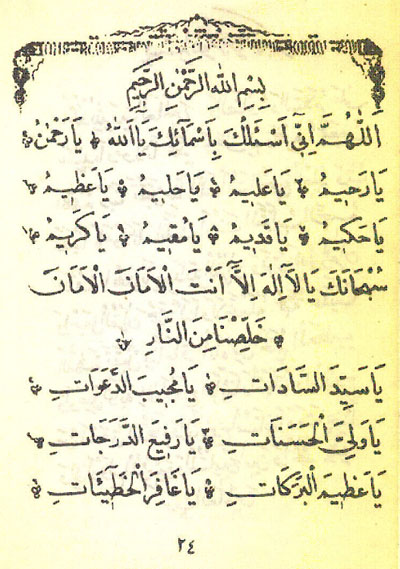 بِسْمِ اللّٰهِ الرَّحْمٰنِ الرَّحِيمِ
اَللّٰهُمَّ اِنِّى اَسْئَلُكَ بِاَسْمَائِكَ يَا اَللّٰهُ ۞ يَا رَحْمٰنُ ۞
يَا رَحِيمُ ۞ يَا عَلِيمُ ۞ يَا حَلِيمُ ۞ يَا عَظِيمُ ۞
يَا حَكِيمُ ۞ يَا قَدِيمُ ۞ يَا مُقِيمُ ۞ يَا كَرِيمُ ۞
سُبْحَانَكَ يَا لَآ اِلٰهَ اِلَّآ اَنْتَ الْاَمَانَ الْاَمَانَ
۞ خَلِّصْنَا مِنَ النَّارِ ۞
يَا سَيِّدَ السَّادَاتِ ۞ يَا مُجِيبَ الدَّعَوَاتِ ۞
يَا وَلِىَّ الْحَسَنَاتِ ۞ يَا رَفِيعَ الدَّرَجَاتِ ۞
يَا عَظِيمَ الْبَرَكَاتِ ۞ يَا غَافِرَ الْخَطِٓيئَاتِ ۞
٢٤